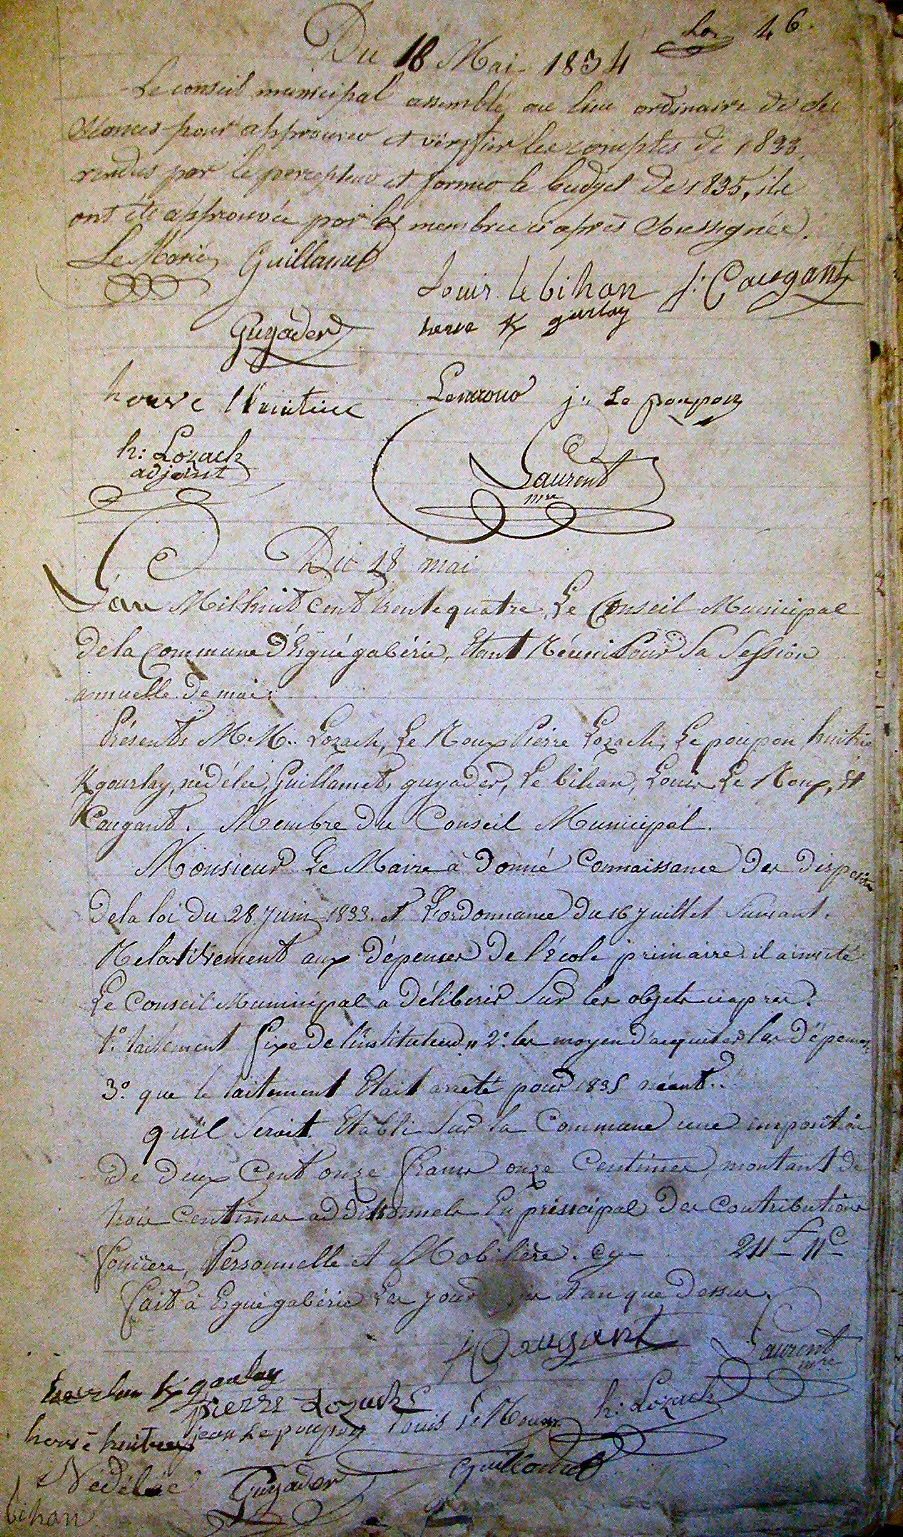 46.
Du 18 Mai 1834
Le conseil municipal assemblé au lieu ordinaire de ses
séances pour approuver et vérifier les comptes de 1833,
rendus par le percepteur et former le budget de 1835, ils
ont été approuvés par les membres ci après soussignés.
Le Maire Guillamet
Louis le bihan j: Caugant
herve K gurlay
Guyader
herve Huitric Lenaour j: Le poupon
h: Lozach
adjoint
Laurent
mre
Du 18 mai
L'an Mil huit cent trente quatre, Le Conseil Municipal
de la Commune d'Ergué gabéric, Etant Réuni Pour Sa Session
annuelle de mai:
Présents M.M. Lozach, Le Roux Pierre Lozach, Le poupon huitric
Kgourlay, nédélec, Guillamet, guyader, Le bihan, Louis Le Roux, Et
Caugant. Membre du Conseil Municipal.
Monsieur Le Maire à Donné Connaissance Des
De la loi du 28 Juin 1833. et L'ordonnance du 16 Juillet Suivant.
Relativement aux dépenses De l'école primaire il a invité
Le Conseil Municipal a délibérer Sur les objets ciapres.
1º. taitement fixe de l'instituteur 2º. les moyen d'acquiter les Dépenses
3º. que le taitement Etait arreté pour 1835 néant..
qu'il Serait Etabli Sur la Commune une imposition
De Deux Cent onze francs onze Centimes, montant de
trois Centimes additionnels En principal Des Contributions
foncière, Personnelle et Mobilière. Cy 211 f 11 c
fait à Ergué gabéric Les jour an que Dessus.
Caugant Laurent
mre
K gourlay
Pierre Lozach h: Lozach
herve huitric jean Le poupon Louis Le Roux
Nédélec Guyader Guillamet
bihan